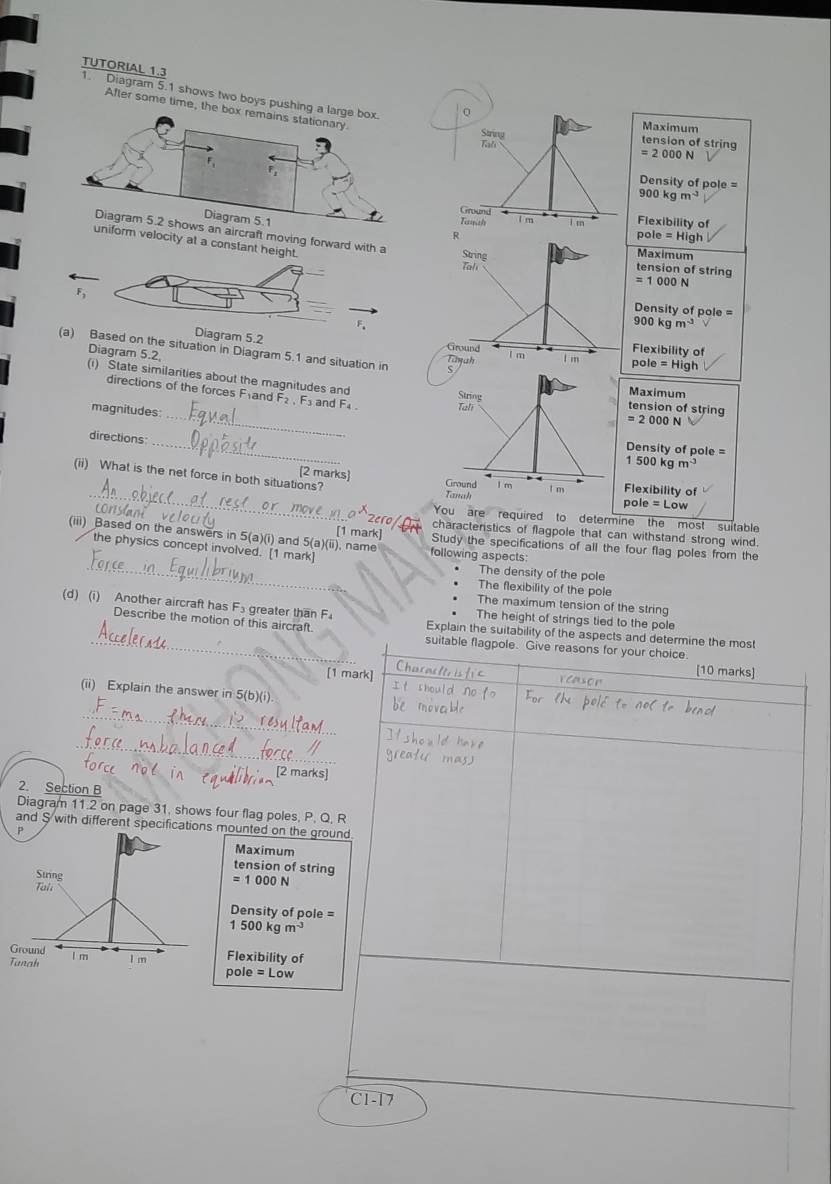 TUTORIAL 1.3
1. Diagram 5.1 shows two boys pushing a large box.
After some time, the box remains stationary.
F₁
F₂
Diagram 5.1
Diagram 5.2 shows an aircraft moving forward with a
uniform velocity at a constant height.
F₃
F₄
Diagram 5.2
(a) Based on the situation in Diagram 5.1 and situation in
Diagram 5.2,
(i) State similarities about the magnitudes and
directions of the forces F₁and F₂ , F₃ and F₄ .
magnitudes: Equal
directions: Opposite
[2 marks]
(ii) What is the net force in both situations?
An object at rest or move in a zero/
constant velocity
[1 mark]
(iii) Based on the answers in 5(a)(i) and 5(a)(ii), name
the physics concept involved. [1 mark]
Force in Equilibrium
(d) (i) Another aircraft has F₃ greater than F₄
Describe the motion of this aircraft.
Accelerate
[1 mark]
(ii) Explain the answer in 5(b)(i).
F = ma there is resultant
force unbalanced force //
force not in equilibrium
[2 marks]
2. Section B
Diagram 11.2 on page 31, shows four flag poles, P, Q, R
and S with different specifications mounted on the ground.
P
String
Tali
Ground
Tanah
1 m
1 m
Maximum
tension of string
= 1 000 N
Density of pole =
1 500 kg m⁻³
Flexibility of
pole = Low
Q
String
Tali
Ground
Tanah
1 m
1 m
Maximum
tension of string
= 2 000 N
Density of pole =
900 kg m⁻³
Flexibility of
pole = High
R
String
Tali
Ground
Tanah
1 m
1 m
Maximum
tension of string
= 1 000 N
Density of pole =
900 kg m⁻³
Flexibility of
pole = High
S
String
Tali
Ground
Tanah
1 m
1 m
Maximum
tension of string
= 2 000 N
Density of pole =
1 500 kg m⁻³
Flexibility of
pole = Low
You are required to determine the most suitable
characteristics of flagpole that can withstand strong wind.
Study the specifications of all the four flag poles from the
following aspects:
• The density of the pole
• The flexibility of the pole
• The maximum tension of the string
• The height of strings tied to the pole
Explain the suitability of the aspects and determine the most
suitable flagpole. Give reasons for your choice.
[10 marks]
Characteristic
reason
It should no to
be movable
For the pole to not to bend
It should have
greater mass
C1-17